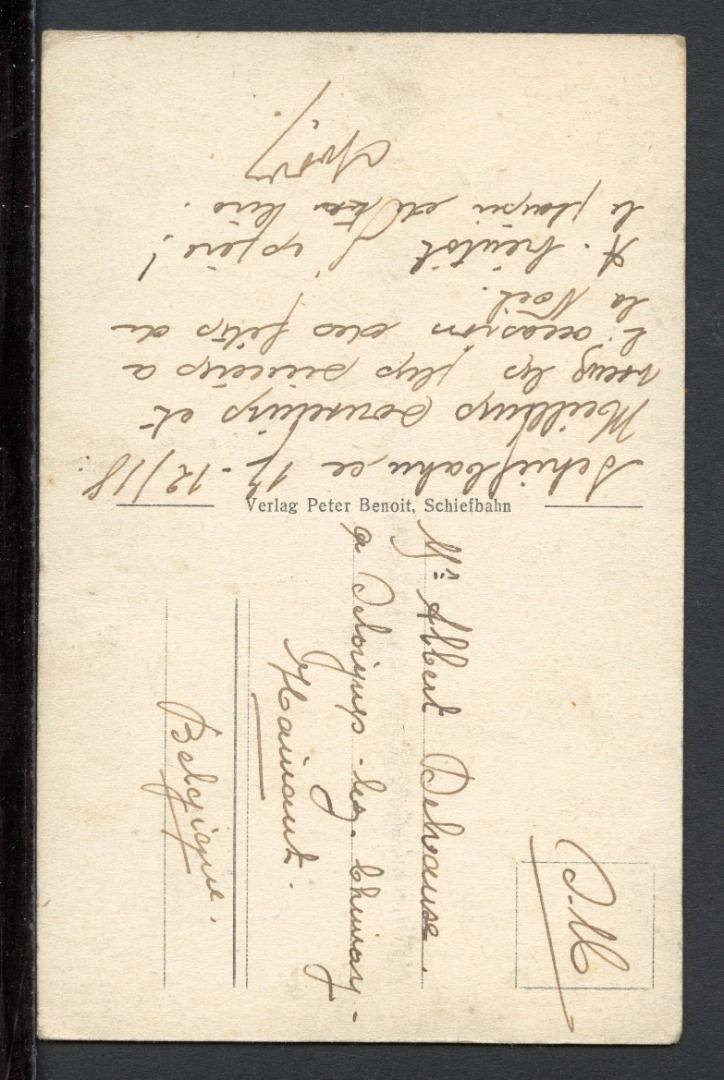 Schiefbahn, ce 17-12/18.
Meilleurs souvenirs et
voeux les plus sincères a
l'occasion des fêtes de
la Noël.
A bientôt j'espère!
le plaisir de
Verlag Peter Benoit, Schiefbahn
Mr Albert Delvause.
a Seloignes-lez-Chimay-
Hainaut.
Belgique.
S.M